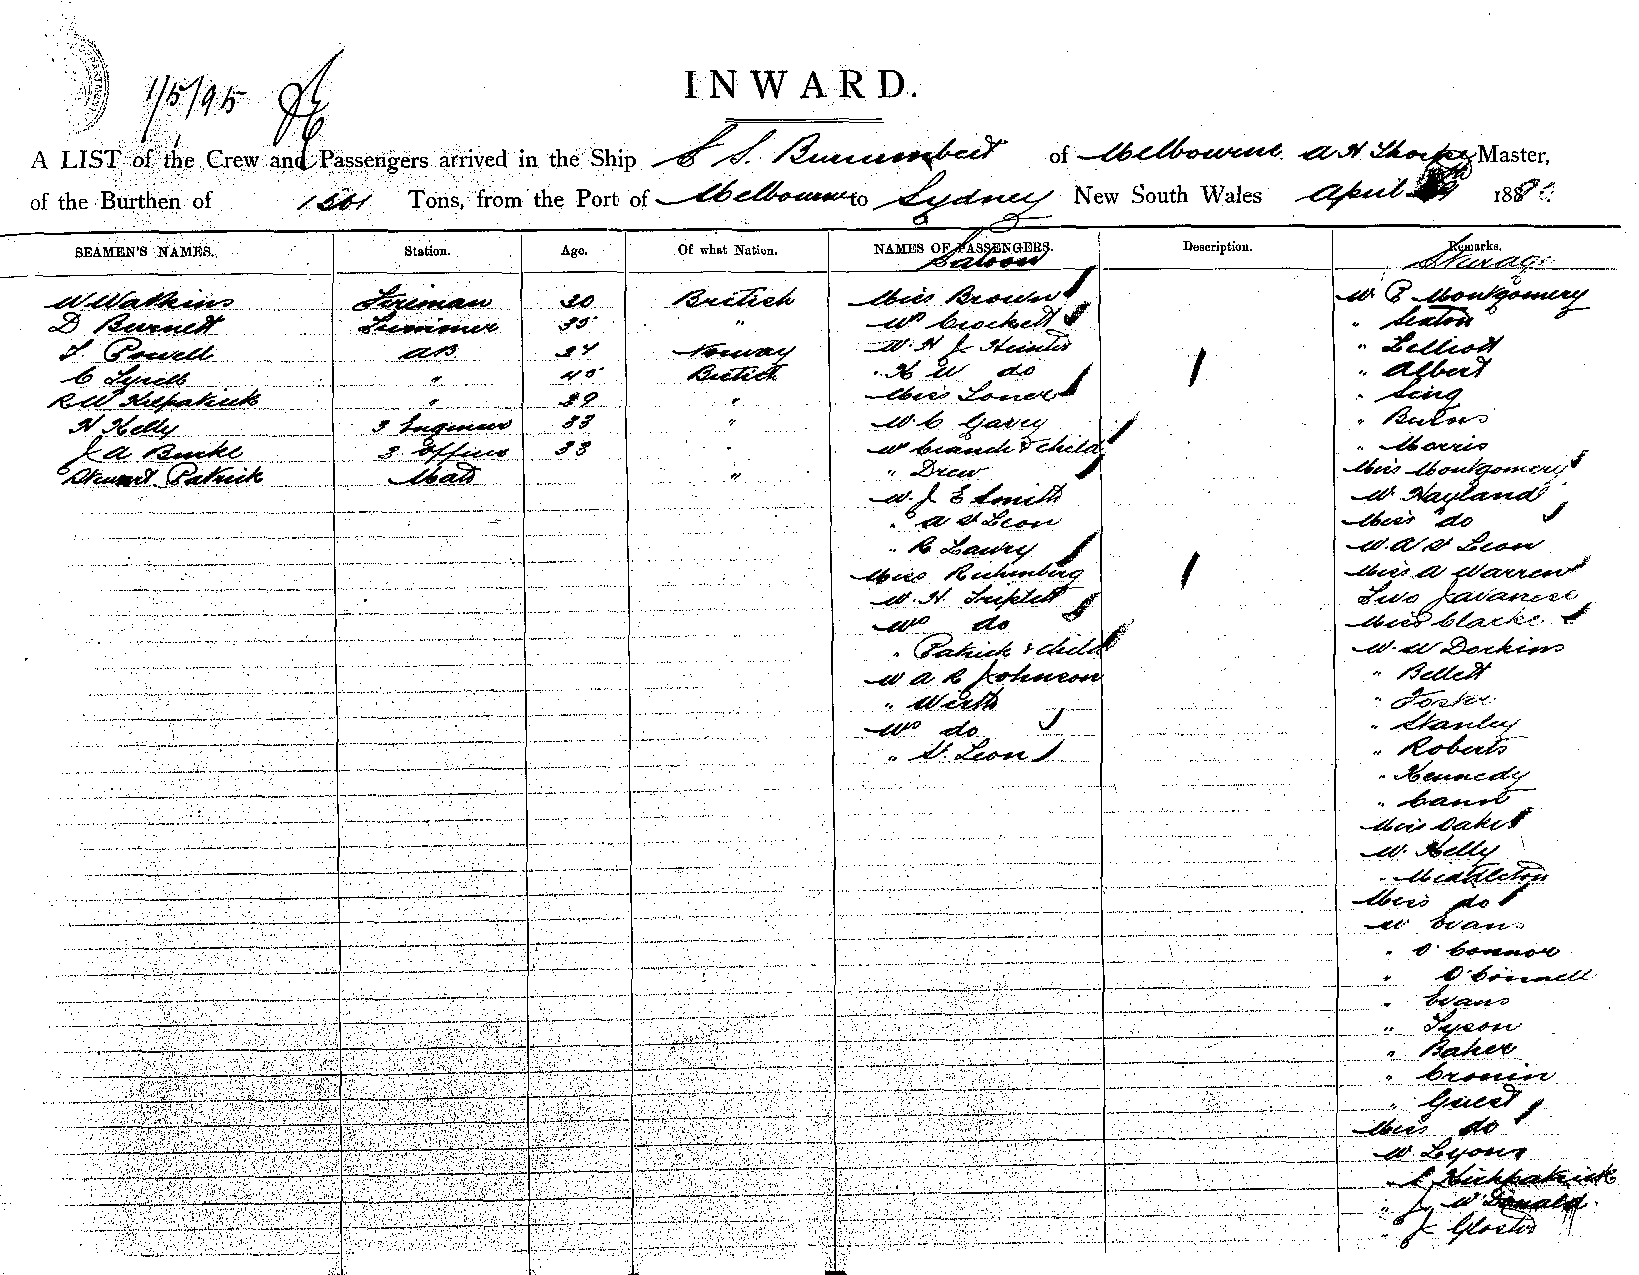 1/5/95
INWARD.
A LIST of the Crew and Passengers arrived in the Ship S S. Burrumbeet of Melbourne. A H Thorpe Master,
of the Burthen of Tons, from the Port of Melbourne to Sydney New South Wales April 188
SEAMEN'S NAMES. Station. Age. Of what Nation. NAMES OF PASSENGERS. Description. Remarks.
Saloon Steerage
W Watkins Fireman 30 British Miss Brown W. P Montgomery
D Burnett Trimmer 35 " Mrs Crockett " Seaton
T. Powell AB 24 Norway W. H J Hunter " Lelliott
C Tyrell " 45 British " H W do " Albert
R W Kilpatrick " 29 " Miss Loner " Sing
H Kelly 3 Engineer 33 " W. C Garey " Burns
J A Burke 3 Officer 33 " Mrs & child " Morris
Stewart Patrick Mate " " Drew Miss Montgomery
W. J E Smith W. Hayland
" A St Leon Miss do
" R Lawry W. A St Leon
Miss Richenberg Miss A Warren
W. H Triplett Two Javanese
Mrs do Miss Clarke
" Patrick & child W. W Dorkins
W A R Johnson " Bellett
" Wirth " Foster
Mrs do " Stanley
" St. Leon " Roberts
" Kennedy
" Cann
Miss Oakes
W. Kelly
" Middleton
Miss do
W Evans
" O'Connor
" O'Connell
" Evans
" Tyson
" Baker
" Cronin
" Guest
Miss do
W Lyons
" Kirkpatrick
" J W Donald
" J Gloster